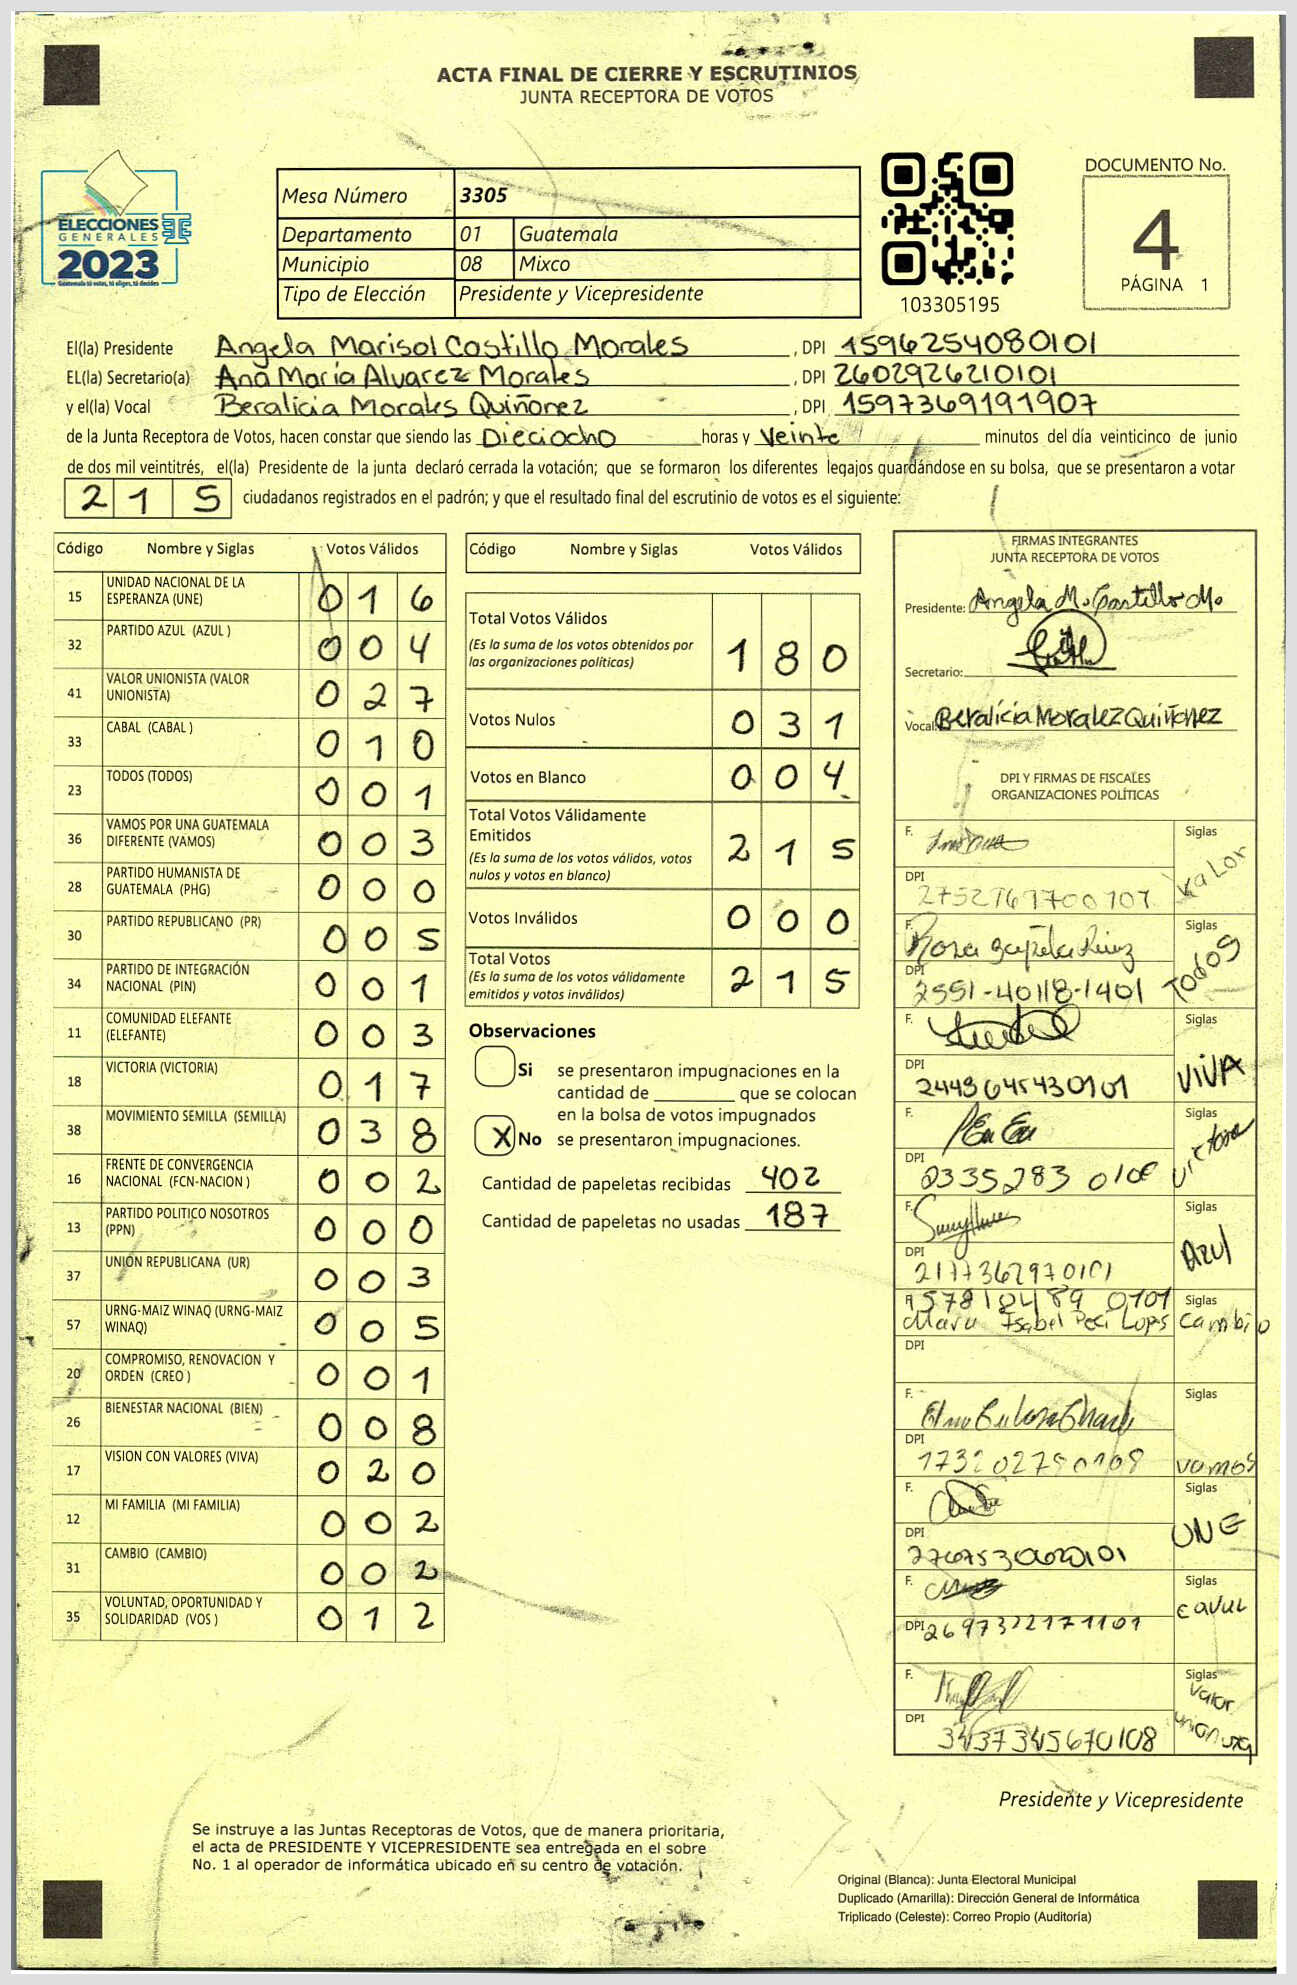 ACTA FINAL DE CIERRE Y ESCRUTINIOS
JUNTA RECEPTORA DE VOTOS
ELECCIONES
GENERALES
2023
Guatemala tú votas, tú eliges, tú decides
Mesa Número 3305
Departamento 01 Guatemala
Municipio 08 Mixco
Tipo de Elección Presidente y Vicepresidente
103305195
DOCUMENTO No.
4
PÁGINA 1
El(la) Presidente Angela Marisol Castillo Morales, DPI 1596254080101
EL(la) Secretario(a) Ana María Alvarez Morales, DPI 2602926210101
y el(la) Vocal Beralicia Morales Quiñonez, DPI 1597369191907
de la Junta Receptora de Votos, hacen constar que siendo las Dieciocho horas y Veinte minutos del día veinticinco de junio
de dos mil veintitrés, el(la) Presidente de la junta declaró cerrada la votación; que se formaron los diferentes legajos guardándose en su bolsa, que se presentaron a votar
215 ciudadanos registrados en el padrón; y que el resultado final del escrutinio de votos es el siguiente:
Código Nombre y Siglas Votos Válidos
15 UNIDAD NACIONAL DE LA ESPERANZA (UNE) 016
32 PARTIDO AZUL (AZUL ) 004
41 VALOR UNIONISTA (VALOR UNIONISTA) 027
33 CABAL (CABAL ) 010
23 TODOS (TODOS) 001
36 VAMOS POR UNA GUATEMALA DIFERENTE (VAMOS) 003
28 PARTIDO HUMANISTA DE GUATEMALA (PHG) 000
30 PARTIDO REPUBLICANO (PR) 005
34 PARTIDO DE INTEGRACIÓN NACIONAL (PIN) 001
11 COMUNIDAD ELEFANTE (ELEFANTE) 003
18 VICTORIA (VICTORIA) 017
38 MOVIMIENTO SEMILLA (SEMILLA) 038
16 FRENTE DE CONVERGENCIA NACIONAL (FCN-NACION ) 002
13 PARTIDO POLITICO NOSOTROS (PPN) 000
37 UNION REPUBLICANA (UR) 003
57 URNG-MAIZ WINAQ (URNG-MAIZ WINAQ) 005
20 COMPROMISO, RENOVACION Y ORDEN (CREO ) 001
26 BIENESTAR NACIONAL (BIEN) 008
17 VISION CON VALORES (VIVA) 020
12 MI FAMILIA (MI FAMILIA) 002
31 CAMBIO (CAMBIO) 002
35 VOLUNTAD, OPORTUNIDAD Y SOLIDARIDAD (VOS ) 012
Código Nombre y Siglas Votos Válidos
Total Votos Válidos 180
(Es la suma de los votos obtenidos por
las organizaciones políticas)
Votos Nulos 031
Votos en Blanco 004
Total Votos Válidamente
Emitidos 215
(Es la suma de los votos válidos, votos
nulos y votos en blanco)
Votos Inválidos 000
Total Votos 215
(Es la suma de los votos válidamente
emitidos y votos inválidos)
Observaciones
Si se presentaron impugnaciones en la
cantidad de ________ que se colocan
en la bolsa de votos impugnados
X No se presentaron impugnaciones.
Cantidad de papeletas recibidas 402
Cantidad de papeletas no usadas 187
FIRMAS INTEGRANTES
JUNTA RECEPTORA DE VOTOS
Presidente: Angela M. Castillo Mo.
Secretario:
Vocal: Beralicia Moralez Quiñonez
DPI Y FIRMAS DE FISCALES
ORGANIZACIONES POLÍTICAS
F. Siglas
DPI VALOR
F. Siglas
DPI 2551-40118-1401 TODOS
F. Siglas
DPI 2449645430101 VIVA
F. Siglas
DPI 2335283 Victoria
F. Siglas
DPI 2177362970101 Azul
Siglas
Isabel Cambio
DPI
F. Siglas
DPI vamos
F. Siglas
DPI UNE
F. Siglas
DPI
F. Siglas
DPI 3437345670108 Valor
Presidente y Vicepresidente
Se instruye a las Juntas Receptoras de Votos, que de manera prioritaria,
el acta de PRESIDENTE Y VICEPRESIDENTE sea entregada en el sobre
No. 1 al operador de informática ubicado en su centro de votación.
Original (Blanca): Junta Electoral Municipal
Duplicado (Amarilla): Dirección General de Informática
Triplicado (Celeste): Correo Propio (Auditoría)